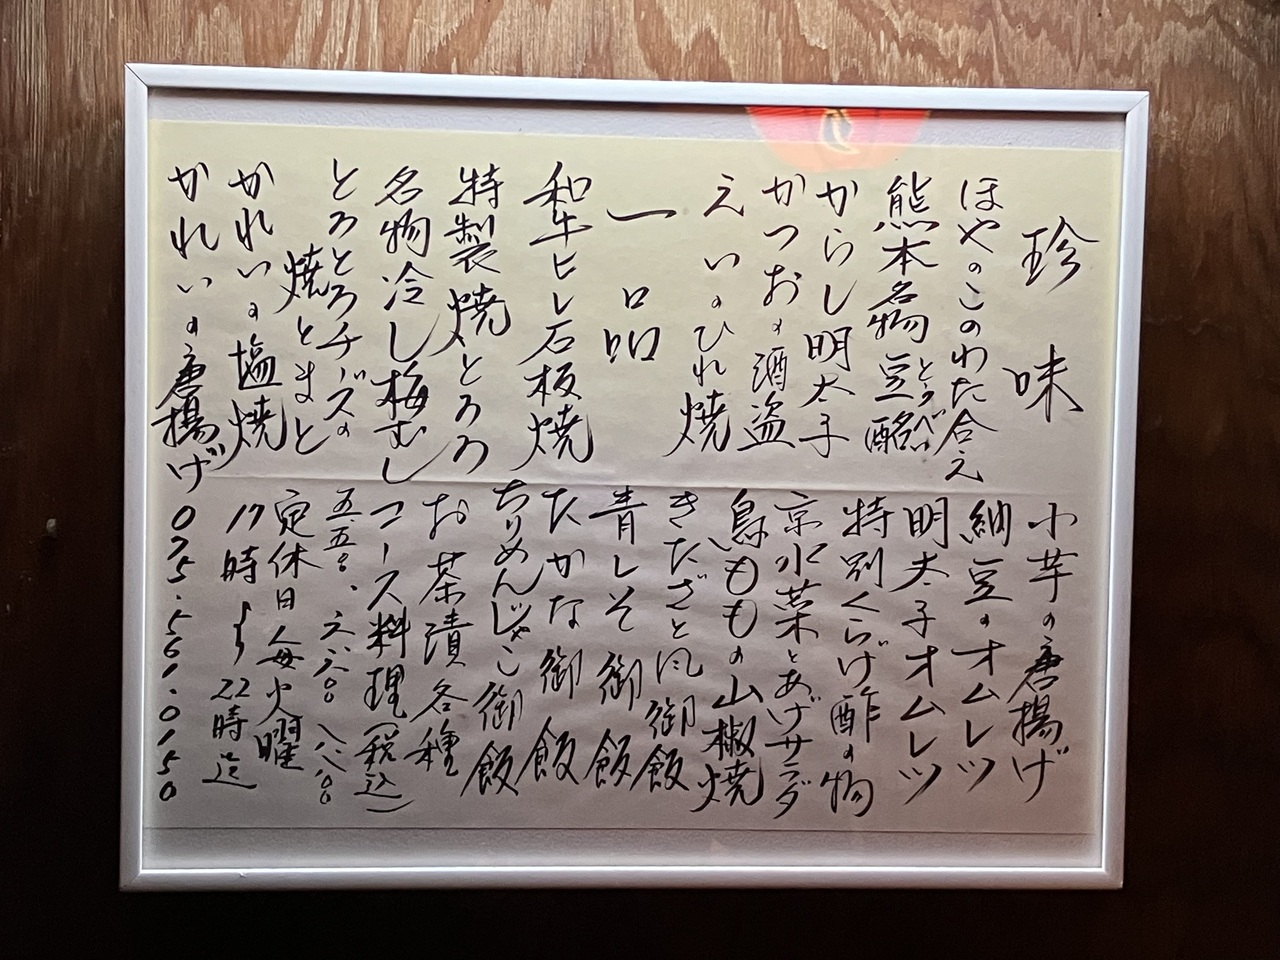 珍味
ほやのこのわた合え
熊本名物豆酩
とうべい
からし明太子
かつおの酒盗
えいのひれ焼
一品
和牛ヒレ石板焼
特製焼とろろ
名物冷し梅むし
とろとろチーズの
焼とまと
かれいの塩焼
かれいの唐揚げ
小芋の唐揚げ
納豆のオムレツ
明太子オムレツ
特別くらげ酢の物
京水菜とあげサラダ
鳥ももの山椒焼
きただざと風御飯
青しそ御飯
たかな御飯
ちりめんじゃこ御飯
お茶漬各種
コース料理(税込)
五、五〇〇、六、六〇〇、八、八〇〇
定休日毎火曜
17時〜22時迄
075.561.0150